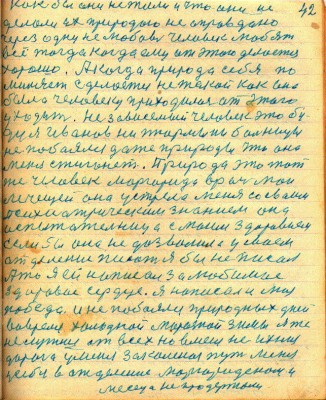 42
как бы они не жили и что они не
делали их природою не оправдано
через одну не любовь человек любят
её тогда когда ему от этого делается
хорошо. А когда природа себя по
меняет сделается не такой как она
была человеку приходится от этого
уходят. Не зависимый человек это бу
дуя Иванов ни тюрьмы ни больницы
не побоялся даже природы что она
меня стигнет. Природа это тот
же человек Маргарида врач мои
лечущей она устрела меня со своим
психиатрическим знанием она
испытательница с моим здоровием
если бы она не дозволила у своем
отделение писат я бы не писал
А то я ей написал за любимые
здоровое сердце. Я написал и моя
победа. и не побоялся природных дней
во время холодной морозной зимы я же
не шутил от всех но в меня не ихняя
дорога у меня законная пут меня
у себя в отделение
месеца не продержали